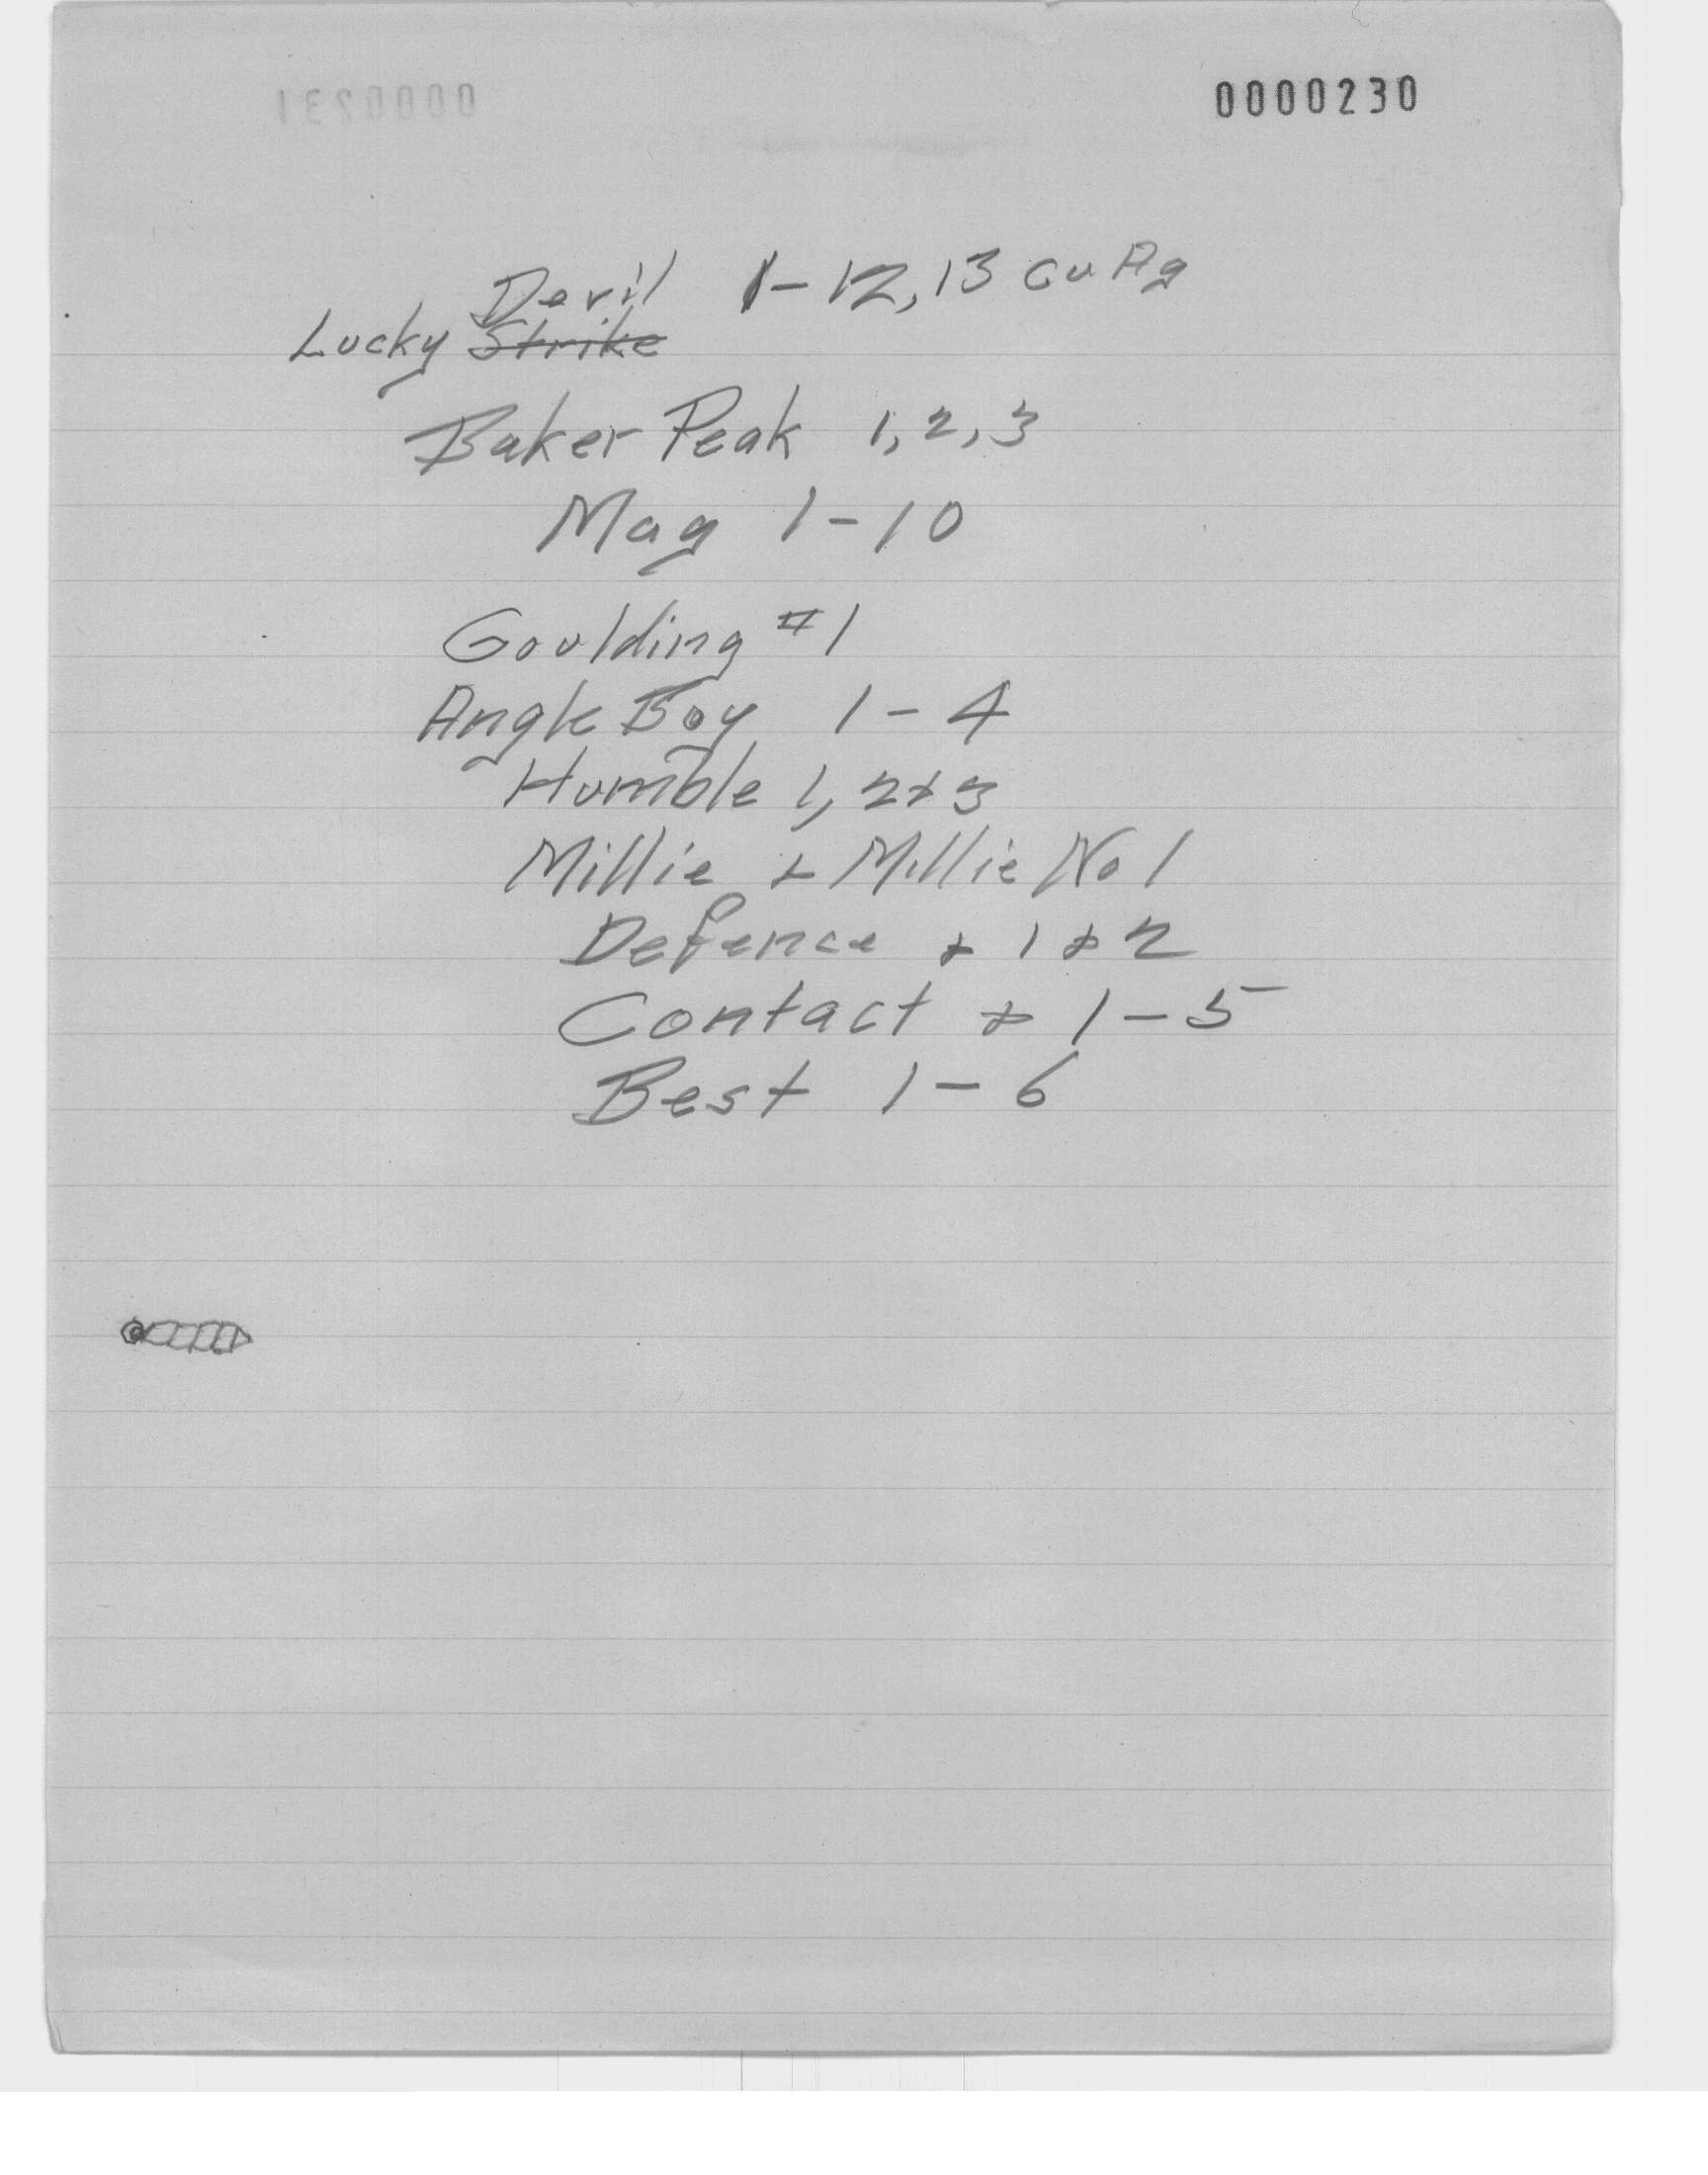 0000230
0000231
Devil 1-12, 13 Cu Ag
Lucky Strike
Baker Peak 1, 2, 3
Mag 1-10
Goulding #1
Angle Boy 1-4
Humble 1, 2+3
Millie + Millie No 1
Defence + 1 + 2
Contact + 1-5
Best 1-6